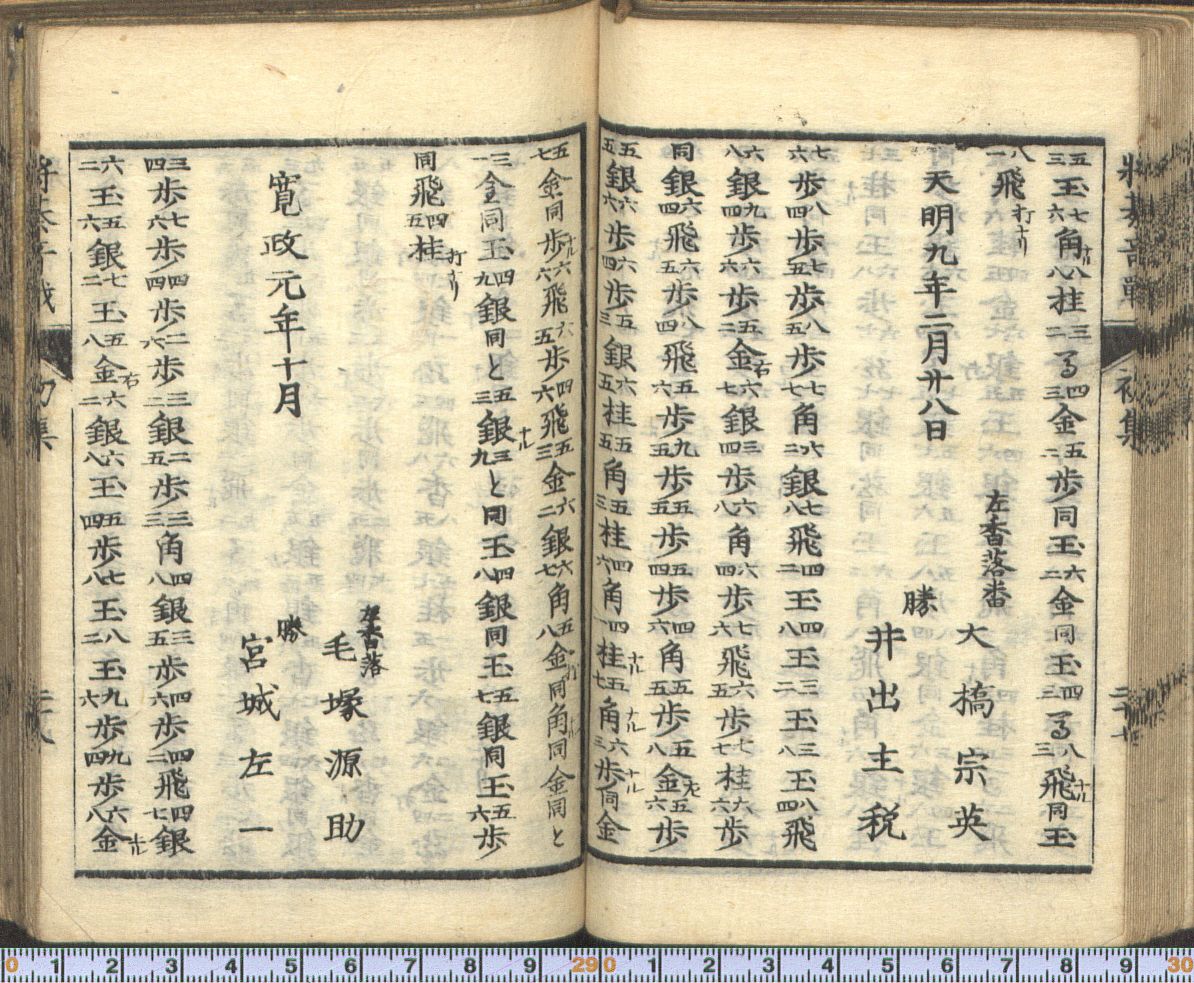 将棊奇戦　初集
五三玉七六角ナル八八桂三二る四三金五二歩同玉六二金同玉四三る八三飛ナル同玉
八一飛打
天明九年二月廿八日
左香落番　大橋宗英
勝　井出主税
七六歩八四歩七五歩八五歩七七角六二銀七八飛四二玉四八玉三二玉三八玉八四飛
六八銀九四歩六六歩五二金右六七銀三四歩六八角六四歩七六飛六五歩七七桂六六歩
同銀六四飛六五歩八四飛五六歩九五歩五五歩五四歩四六角五五歩五八金左五六歩
五五銀六六歩六四歩五三銀六五桂五五角五三桂四六角四一桂ナル五七角ナル六三歩ナル同金
五七金同歩ナル六六飛六五歩四六飛五三金六二銀六七角五八金同角ナル同金同と
三一金同玉四九銀同と五三銀ナル三九と同玉四八銀同玉五七銀同玉五六歩
同飛四五桂打
寛政元年十月
左香落　毛塚源助
勝　宮城左一
三四歩七六歩四四歩二六歩三二銀二五歩三三角四八銀三五歩四六歩四二飛四七銀
六二玉五六銀七二玉五八金右六二銀六八玉五四歩七八玉八二玉九六歩九四歩六八金